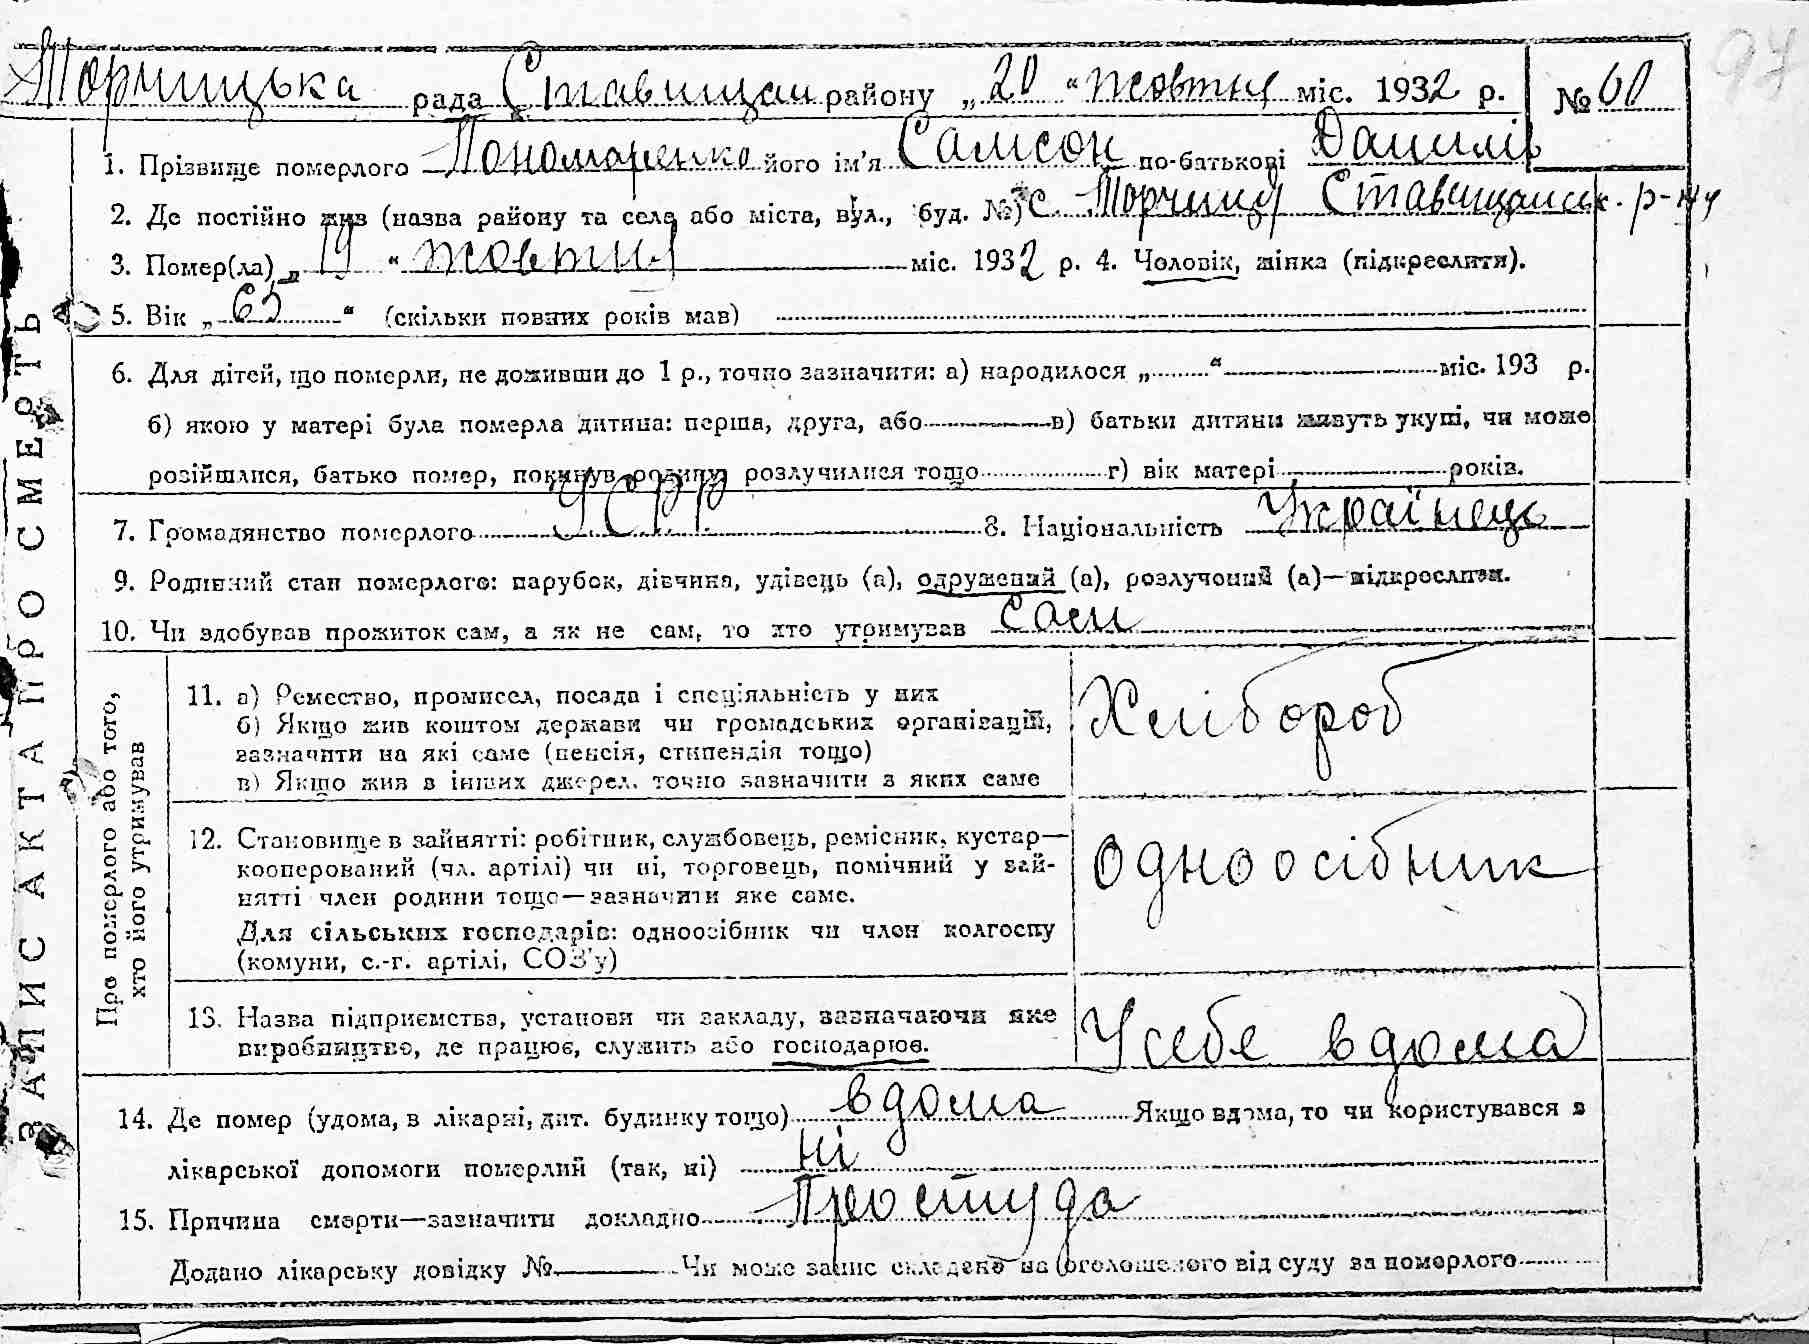 97
Торчицька рада Ставищан району „20“ жовтня міс. 1932 р. № 60
1. Прізвище померлого Пономаренко його ім'я Самсон по-батькові Данилів
2. Де постійно жив (назва району та села або міста, вул., буд. №) с. Торчиця Ставищанськ. р-ну
3. Помер(ла) „19“ жовтня міс. 1932 р. 4. Чоловік, жінка (підкреслити).
5. Вік „65“ (скільки повних років мав)
6. Для дітей, що померли, не доживши до 1 р., точно зазначити: а) народилося „ “ міс. 193 р.
б) якою у матері була померла дитина: перша, друга, або в) батьки дитини живуть укупі, чи може
розійшлися, батько помер, покинув родину, розлучилися тощо г) вік матері років.
7. Громадянство померлого УСРР 8. Національність Українець
9. Родинний стан померлого: парубок, дівчина, удівець (а), одружений (а), розлучений (а)—підкреслити.
10. Чи здобував прожиток сам, а як не сам, то хто утримував сам
ЗАПИС АКТА ПРО СМЕРТЬ
Про померлого або того,
хто його утримував
11. а) Ремество, промисел, посада і спеціяльність у них
б) Якщо жив коштом держави чи громадських організацій,
зазначити на які саме (пенсія, стипендія тощо)
в) Якщо жив з інших джерел, точно зазначити з яких саме
Хлібороб
12. Становище в зайнятті: робітник, службовець, ремісник, кустар—
кооперований (чл. артілі) чи ні, торговець, помічний у зай-
нятті член родини тощо—зазначити яке саме.
Для сільських господарів: одноосібник чи член колгоспу
(комуни, с.-г. артілі, СОЗ'у)
Одноосібник
13. Назва підприємства, установи чи закладу, зазначаючи яке
виробництво, де працює, служить або господарює.
У себе вдома
14. Де помер (удома, в лікарні, дит. будинку тощо) вдома Якщо вдома, то чи користувався з
лікарської допомоги померлий (так, ні) ні
15. Причина смерти—зазначити докладно Простуда
Додано лікарську довідку № Чи може запис складено на оголошеного від суду за померлого